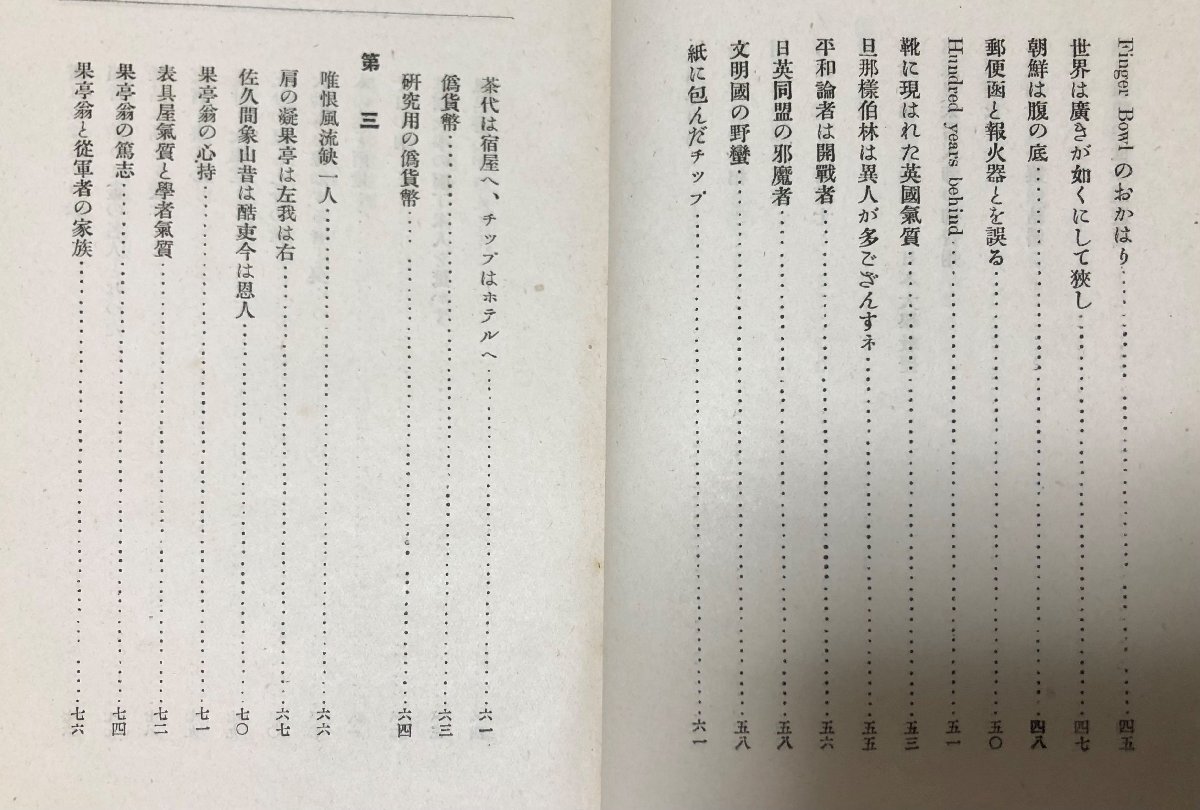 Finger Bowl のおかはり……四五
世界は廣きが如くにして狹し……四七
朝鮮は腹の底……四八
郵便函と報火器とを誤る……五〇
Hundred years behind……五一
靴に現はれた英國氣質……五三
旦那樣伯林は異人が多ござんすネ……五五
平和論者は開戰者……五六
日英同盟の邪魔者……五八
文明國の野蠻……五八
紙に包んだチップ……六一
茶代は宿屋へ、チップはホテルへ……六一
僞貨幣……六三
硏究用の僞貨幣……六四
第三
唯恨風流缺一人……六六
肩の凝果亭は左我は右……六七
佐久間象山昔は酷吏今は恩人……七〇
果亭翁の心持……七一
表具屋氣質と學者氣質……七二
果亭翁の篤志……七四
果亭翁と從軍者の家族……七六